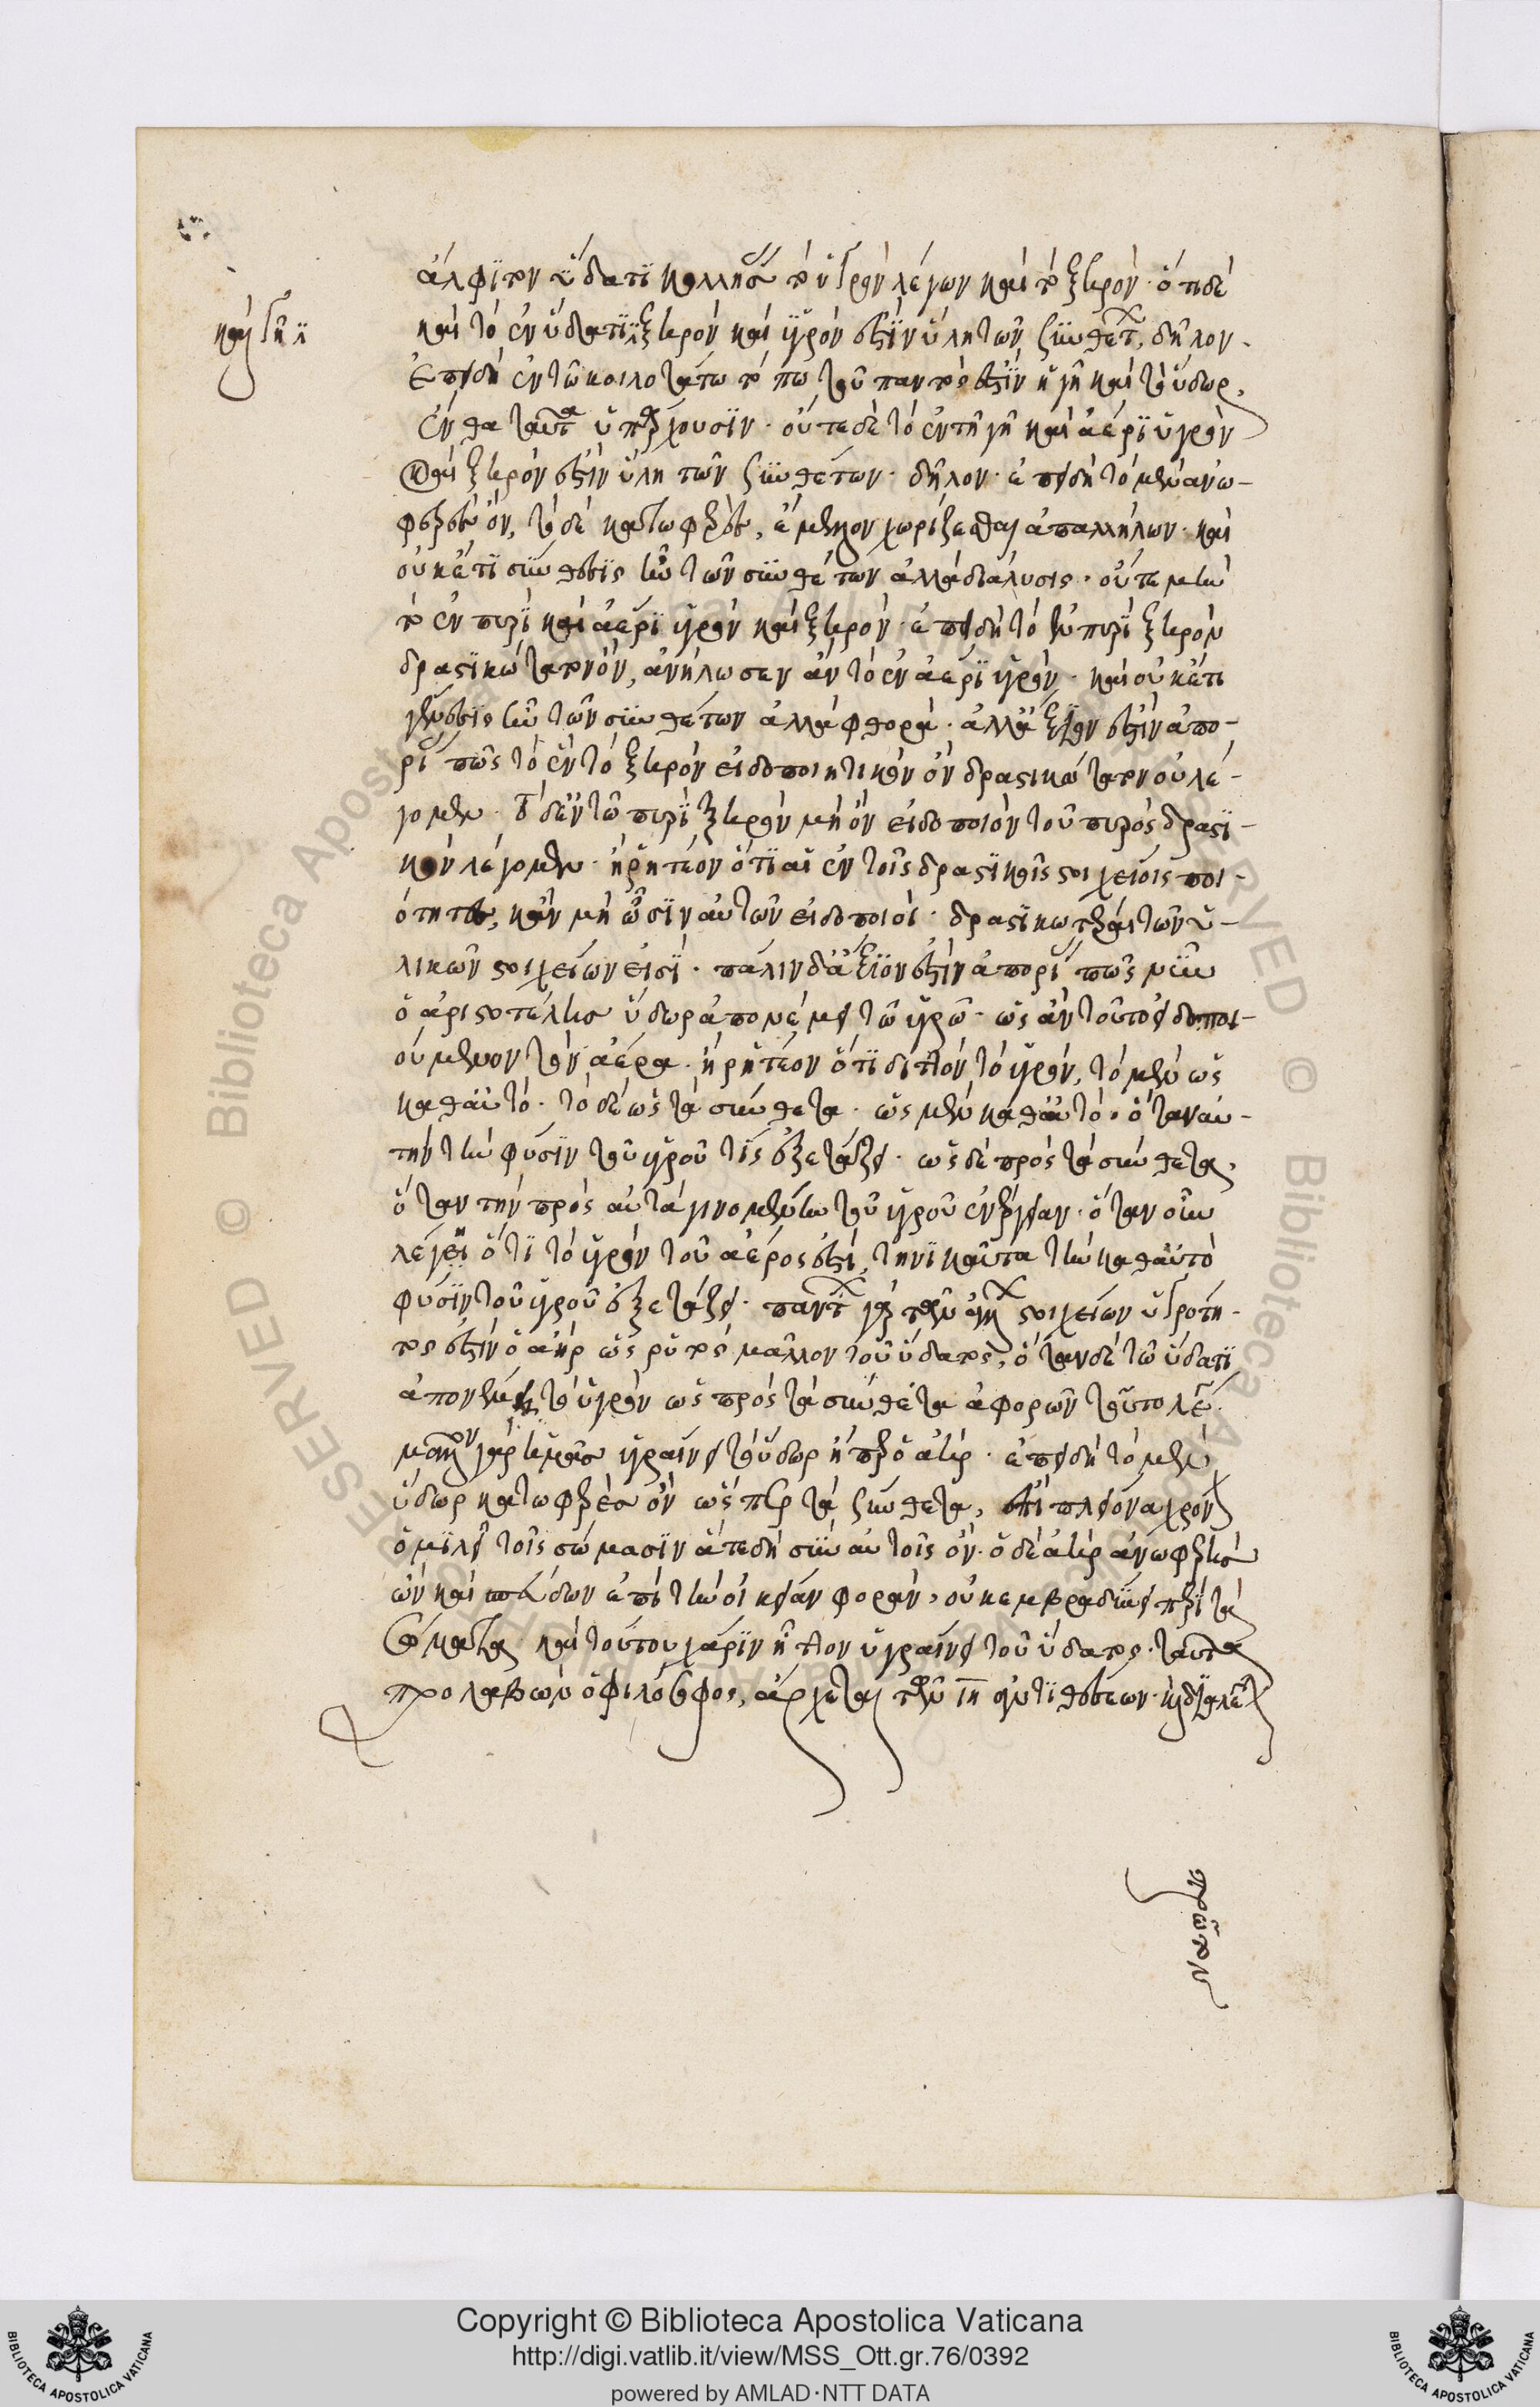 ἄλφιτον ὕδατι κολλήσας τὸ ὑγρὸν λέγων καὶ τὸ ξηρόν. ὅτι δὲ
καὶ γῆ
καὶ τὸ ἐν ὕδατι ξηρὸν καὶ ὑγρόν ἐστιν ὕλη τῶν συνθέτων, δῆλον.
ἐπειδὴ ἐν τῷ κοιλοτάτω τόπω τοῦ παντός ἐστιν ἡ γῆ καὶ τὸ ὕδωρ,
ἔνθα ταῦτα ὑπάρχουσιν. οὔτε δὲ τὸ ἐν τῇ γῆ καὶ ἀέρι ὑγρὸν
καὶ ξηρόν ἐστιν ὕλη τῶν συνθέτων. δῆλον. ἐπειδὴ τὸ μὲν ἀνω-
φερὲς ὄν, τὸ δὲ κατωφερές, ἔμελλον χωρίζεσθαι ἀπαλλήλων. καὶ
οὐκέτι σύνθεσις ἦν τῶν συνθέτων ἀλλὰ διάλυσις. οὔτε μὴν
τὸ ἐν πυρὶ καὶ ἀέρι ὑγρὸν καὶ ξηρόν. ἐπειδὴ τὸ ἐν πυρὶ ξηρὸν
δραστικώτατον ὄν, ἀνήλωσεν ἂν τὸ ἐν ἀέρι ὑγρόν. καὶ οὐκέτι
γένεσις ἦν τῶν συνθέτων ἀλλὰ φθορά. ἀλλ' ἄξιόν ἐστιν ἀπο-
ρίας πῶς τὸ ἐν τὸ ξηρὸν εἰδοποιητικὸν ὂν δραστικώτατον οὐ λέ-
γομεν. τὸ δ' ἐν τῷ πυρὶ ξηρὸν μὴ ὂν εἰδοποιὸν τοῦ πυρὸς δραστι-
κὸν λέγομεν. ἢ ῥητέον ὅτι αἱ ἐν τοῖς δραστικοῖς στοιχείοις ποι-
ότητες, κἂν μὴ ὦσιν αὐτῶν εἰδοποιοί. δραστικώτεραι τῶν ὑ-
λικῶν στοιχείων εἰσί. πάλιν δ' ἄξιόν ἐστιν ἀπορίας πῶς νῦν
ὁ ἀριστοτέλης ὕδωρ ἀπονέμει τῷ ὑγρῷ. ὡς ἂν τοῦτο εἰδοποι-
ούμενον τὸν ἀέρα. ἢ ῥητέον ὅτι διττὸν τὸ ὑγρόν, τὸ μὲν ὡς
καθαὑτό. τὸ δὲ ὡς τὰ σύνθετα. ὡς μὲν καθαὑτό. ὅταν αὐ-
τὴν τὴν φύσιν τοῦ ὑγροῦ τὶς ἐξετάζει. ὡς δὲ πρὸς τὰ σύνθετα,
ὅταν τὴν πρὸς αὐτὰ γινομένην τοῦ ὑγροῦ ἐνέργειαν. ὅταν οὖν
λέγει ὅτι τὸ ὑγρὸν τοῦ ἀέρος ἐστί, τηνικαῦτα τὴν καθαὑτὸ
φύσιν τοῦ ὑγροῦ ἐξετάζει. πάντων γὰρ τῶν στοιχείων ὑγρότη-
τος ἐστὶν ὁ ἀὴρ ὡς ῥυτὸς μᾶλλον τοῦ ὕδατος, ὅταν δὲ τῷ ὕδατι
ἀπονέμει τὸ ὑγρὸν ὡς πρὸς τὰ σύνθετα ἀφορῶν τοῦτο λέγει.
μᾶλλον γὰρ ἡμᾶς ὑγραίνει τὸ ὕδωρ ἤπερ ὁ ἀήρ. ἐπειδὴ τὸ μὲν
ὕδωρ κατωφερὲς ὂν ὥσπερ τὰ σύνθετα, ἐπὶ πλείονα χρόνον
ὁμιλεῖ τοῖς σώμασιν ἅτε δὴ σὺν αὐτοῖς ὄν. ὁ δὲ ἀὴρ ἀνωφερὴς
ὢν καὶ σπεύδων ἐπὶ τὴν οἰκείαν φοράν, οὐκ ἐμβραδύνει περὶ τὰ
σώματα καὶ τούτου χάριν ἧττον ὑγραίνει τοῦ ὕδατος. ταῦτα
προλαβὼν ὁ φιλόσοφος, ἄρχεται τῶν ιη ἀντιθέσεων.
πρῶτον
Copyright © Biblioteca Apostolica Vaticana
http://digi.vatlib.it/view/MSS_Ott.gr.76/0392
powered by AMLAD·NTT DATA